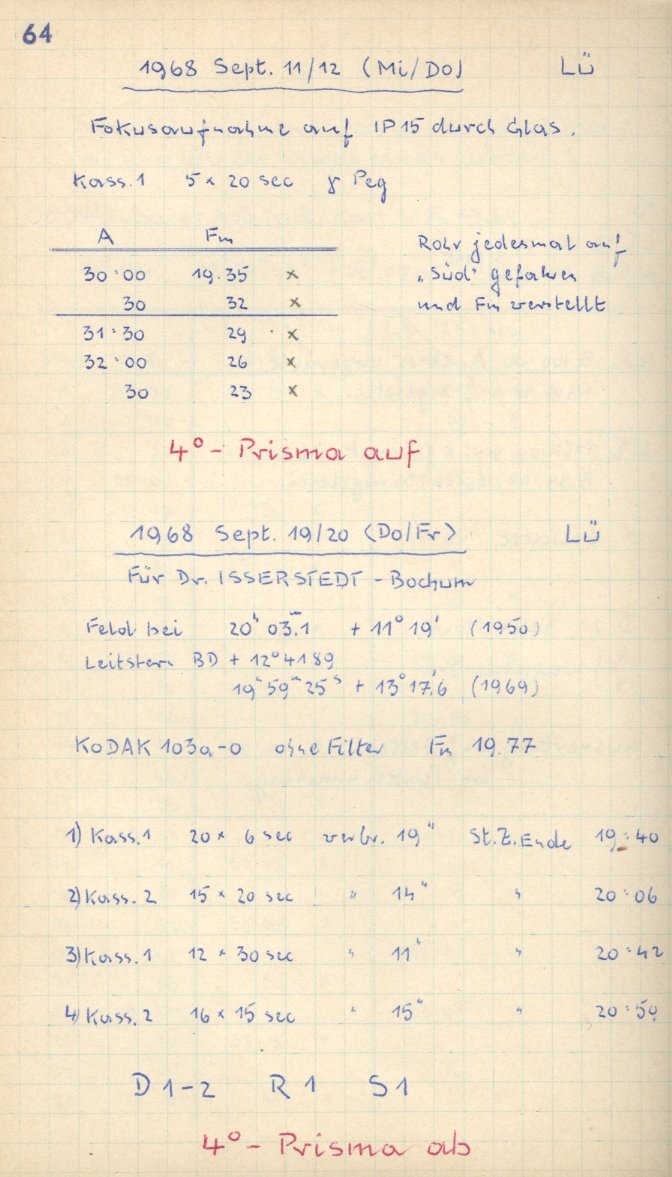 64
1968 Sept. 11/12 (Mi/Do) LÜ
Fokusaufnahme auf IP15 durch Glas.
Kass.1 5 × 20 sec γ Peg
A Fm
30:00 19.35 ×
30 32 ×
31:30 29 ×
32:00 26 ×
30 23 ×
Rohr jedesmal auf
„Süd“ gefahren
und Fm verstellt
4° - Prisma auf
1968 Sept. 19/20 (Do/Fr) LÜ
Für Dr. ISSERSTEDT - Bochum
Feld bei 20ʰ 03ᵐ.1 + 11° 19' (1950)
Leitstern BD + 12° 4189
19ʰ 59ᵐ 25ˢ + 13° 17'.6 (1969)
KODAK 103a-O ohne Filter Fn 19.77
1) Kass.1 20 × 6 sec verbr. 19" St.Z. Ende 19:40
2) Kass. 2 15 × 20 sec " 14" " 20:06
3) Kass. 1 12 × 30 sec " 11" " 20:42
4) Kass. 2 16 × 15 sec " 15" " 20:59
D 1-2 R 1 S 1
4° - Prisma ab